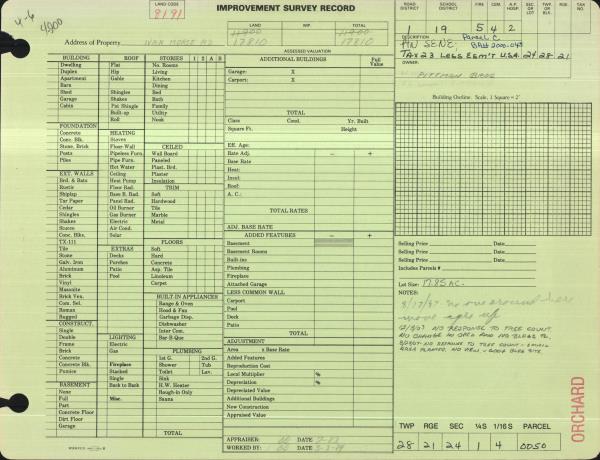 4-6
4900
LAND CODE
8191
IMPROVEMENT SURVEY RECORD
LAND WP. TOTAL
17810 17810
Address of Property
ASSESSED VALUATION
ROAD DISTRICT SCHOOL DISTRICT FIRE COM. A.P. HOSP. SEC OR LOT TWP OR BLK RGE. TAX NO.
1 19 5 4 2
Parcel C
TAX 23 LESS ESM'T USA 24 28-21
OWNER:
BUILDING ROOF STORIES 1 2 A B
Dwelling Flat No. Rooms
Duplex Hip Living
Apartment Gable Kitchen
Barn Dining
Shed Shingles Bed
Garage Shakes Bath
Cabin Pat Shingle Family
Built-up Utility
Roll Nook
FOUNDATION
Concrete HEATING
Conc. Blk. Stoves
Stone, Brick Floor-Wall CEILED
Posts Pipeless Furn. Wall Board
Piles Pipe Furn. Paneled
Hot Water Plast. Brd.
EXT. WALLS Ceiling Plaster
Brd. & Bats Heat Pump Insulation
Rustic Floor Rad. TRIM
Shiplap Base B. Rad. Soft
Tar Paper Panel Rad. Hardwood
Cedar Oil Burner Tile
Shingles Gas Burner Marble
Shakes Electric Metal
Stucco Air Cond.
Conc. Blks. Solar
TX-111 FLOORS
Tile EXTRAS Soft
Stone Decks Hard
Galv. Iron Porches Concrete
Aluminum Patio Asp. Tile
Brick Pool Linoleum
Vinyl Carpet
Masonite
Brick Ven. BUILT-IN APPLIANCES
Com. Sel. Range & Oven
Roman Hood & Fan
Rugged Garbage Disp.
CONSTRUCT. Dishwasher
Single Inter Com.
Double LIGHTING Bar-B-Que
Frame Electric
Brick Gas PLUMBING
Concrete 1st G. 2nd G.
Concrete Blk. Fireplace Shower Tub
Pumice Stacked Toilet Lav.
Single Sink
BASEMENT Back to Back H.W. Heater
None Rough-in Only
Full Misc. Sauna
Part
Concrete Floor
Dirt Floor
Garage TOTAL
ADDITIONAL BUILDINGS Full Value
Garage: X
Carport: X
TOTAL
Class Cond. Yr. Built
Square Ft. Height
Eff. Age:
Rate Adj. - +
Base Rate
Heat:
Insul:
Roof:
A. C.:
TOTAL RATES
ADJ. BASE RATE
ADDED FEATURES - +
Basement
Basement Rooms
Built-ins
Plumbing
Fireplace
Attached Garage
LESS COMMON WALL
Carport
Pool
Deck
Patio
TOTAL
ADJUSTMENT
Area x Base Rate
Added Features
Reproduction Cost
Local Multiplier %
Depreciation %
Depreciated Value
Additional Buildings
New Construction
Appraised Value
APPRAISER: DATE
WORKED BY: DATE
Building Outline. Scale, 1 Square = 2'
Selling Price Date
Selling Price Date
Selling Price Date
Includes Parcels #
Lot Size: 17.85 AC.
NOTES:
8/17/87 no one around here
NO RESPONSE TO TREE COUNT.
ORCHARD
TWP RGE SEC ¼S 1/16 S PARCEL
28 21 24 1 4 0050